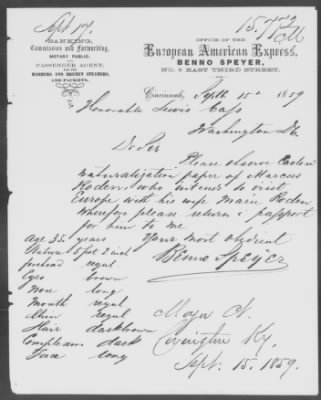 Sept 17.
15,759
BANKING,
Commission and Forwarding,
NOTARY PUBLIC.
PASSENGER AGENT,
FOR THE
HAMBURG AND BREMEN STEAMERS,
AND PACKETS.
OFFICE OF THE
European American Express,
BENNO SPEYER,
NO. 8 EAST THIRD STREET.
Cincinnati, Septb 15t 1859
Honorable Lewis Cass
Washington DC
Dr Sir
Please observe Enclosed
naturalization paper of Marcus
Roden, who intends to visit
Europe with his wife Marie Roden
Wherefore please return a passport
for him to me
Your most obedient
Benno Speyer
age 35 years
Stature 5 feet 2 inch
forehead regul.
Eyes brown
nose long
mouth regul
Chin regul
Hair darkbrown
Complexion dark
Face long
Covington Ky.
Sept. 15. 1859.